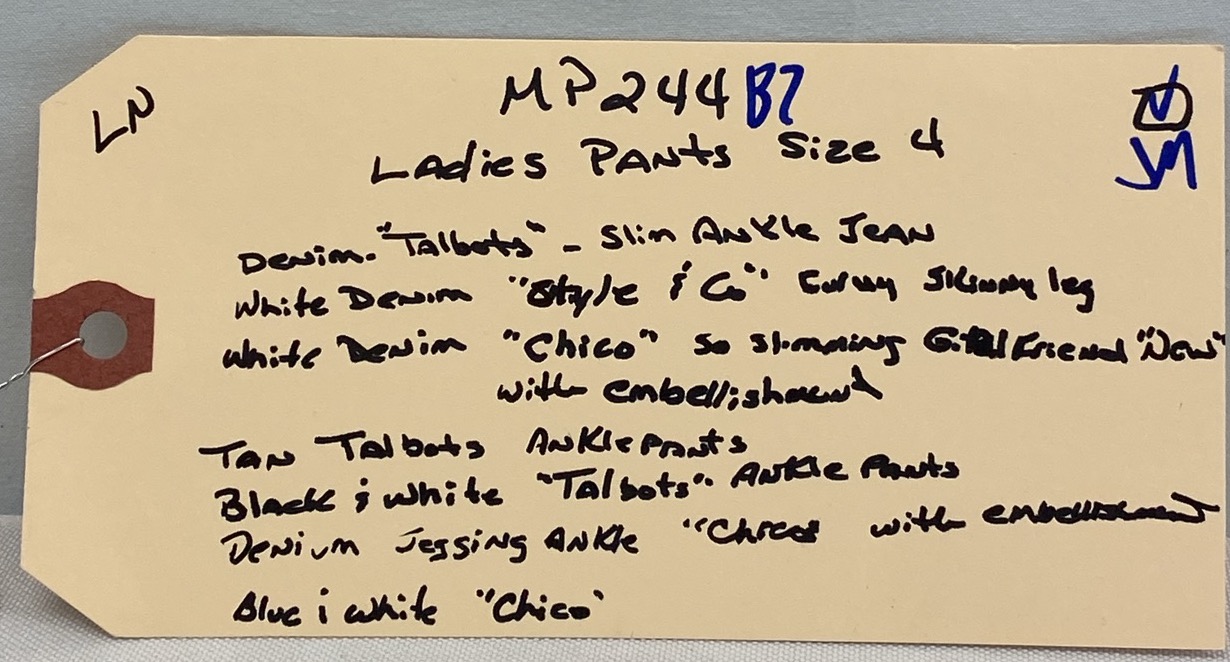 LN
MP244 B7
JM
Ladies Pants Size 4
Denim - "Talbots" - Slim Ankle Jean
White Denim "Style & Co" Curvy Skinny leg
White Denim "Chico" So Slimming Girlfriend "New"
with embellishment
Tan Talbots Ankle Pants
Black & White "Talbots" Ankle Pants
Denium Jegging Ankle "Chicos with embellishment
Blue & White "Chico"